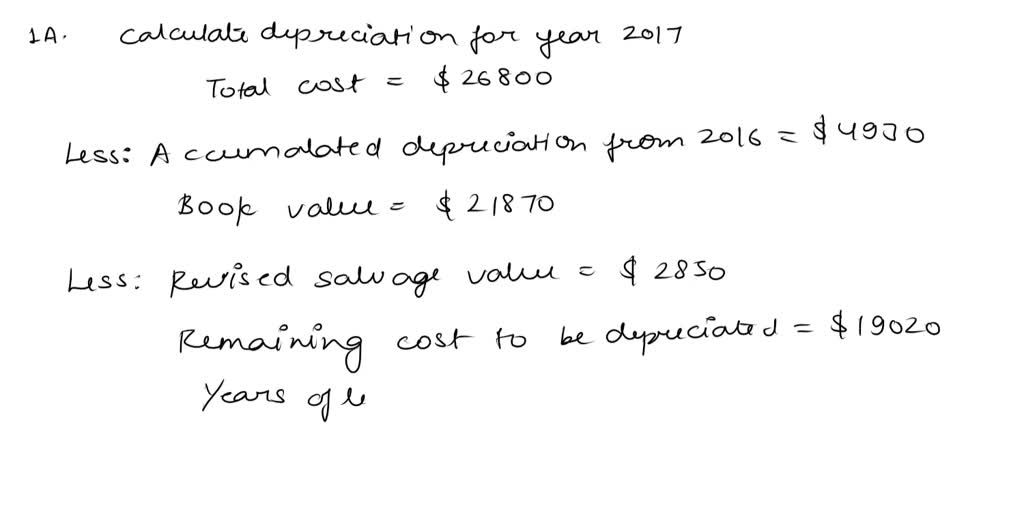 1A. Calculate depreciation for year 2017
Total cost = $ 26800
Less: Accumalated depreciation from 2016 = $ 4930
Book value = $ 21870
Less: Revised salvage value = $ 2850
Remaining cost to be depreciated = $ 19020
Years of